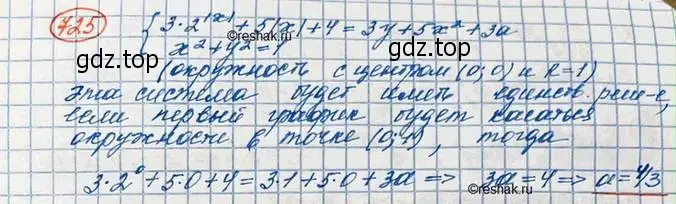 725
{ 3·2^|x| + 5|x| + 4 = 3y + 5x² + 3a
x² + y² = 1
gdz.top
gdz.top
(окружность с центром (0;0) и R=1)
Эта система будет иметь единств. реш-е,
если первый график будет касаться
окружности в точке (0;1), тогда
3·2⁰ + 5·0 + 4 = 3·1 + 5·0 + 3a => 3a = 4 => a = 4/3